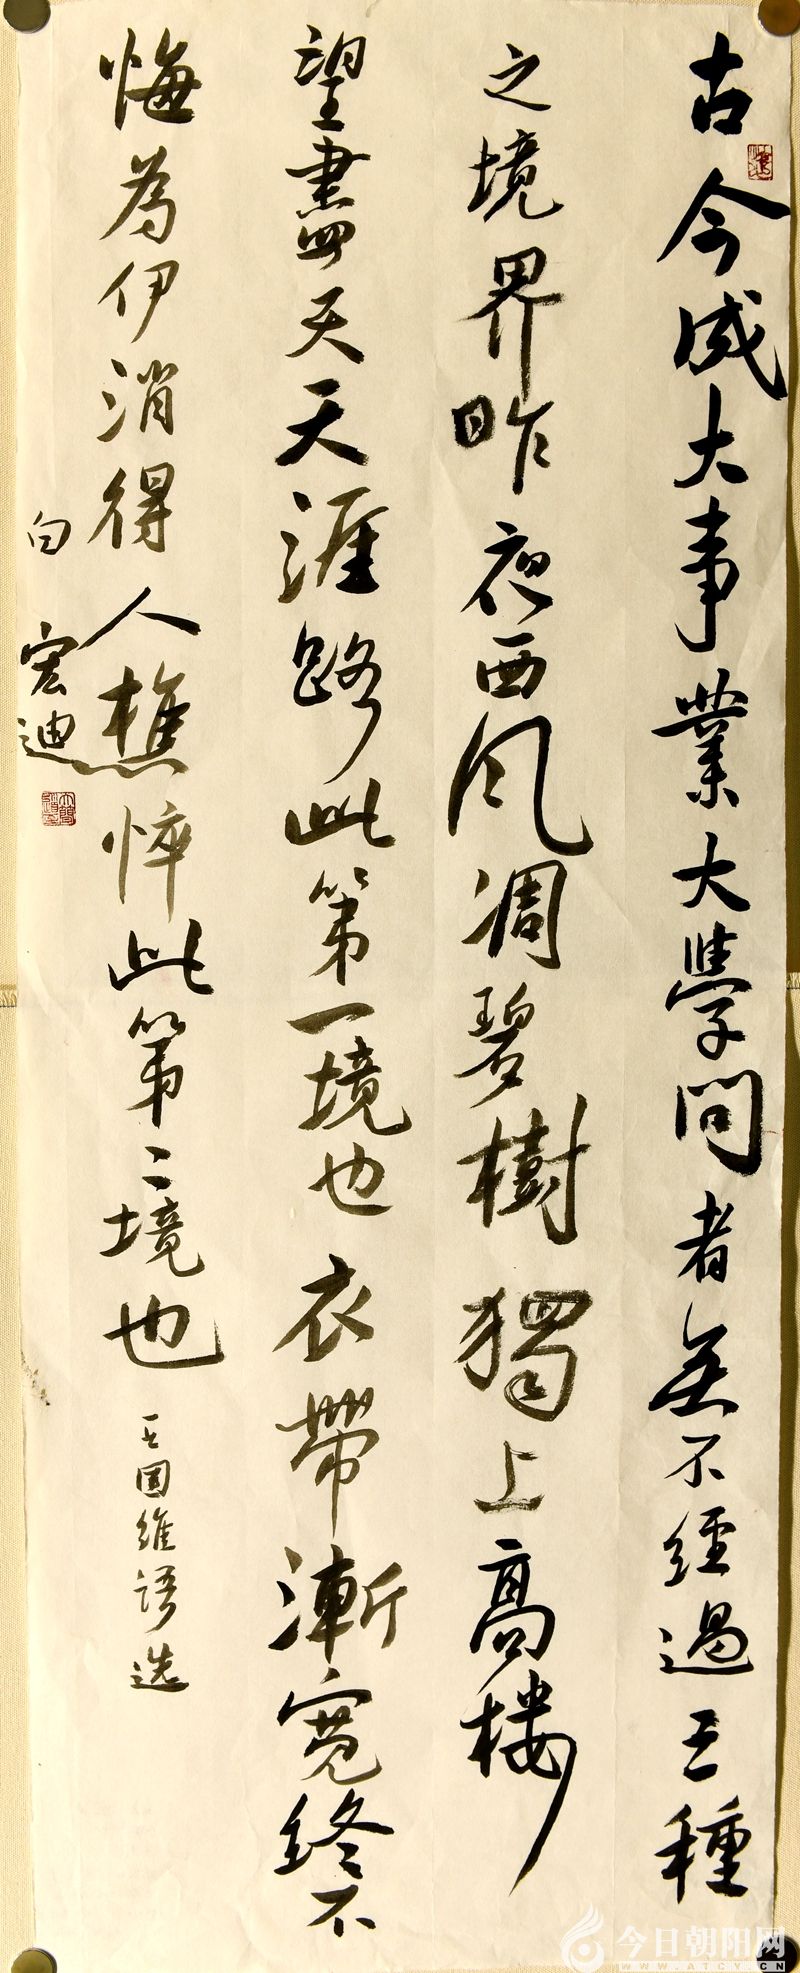 古今成大事業大學問者無不經過三種
之境界昨夜西风凋碧樹獨上高楼
望盡天天涯路此第一境也衣帶漸寬終不
悔為伊消得人憔悴此第二境也
王国維語選
白宏迪
今日朝阳网
WWW.ATCY.CN